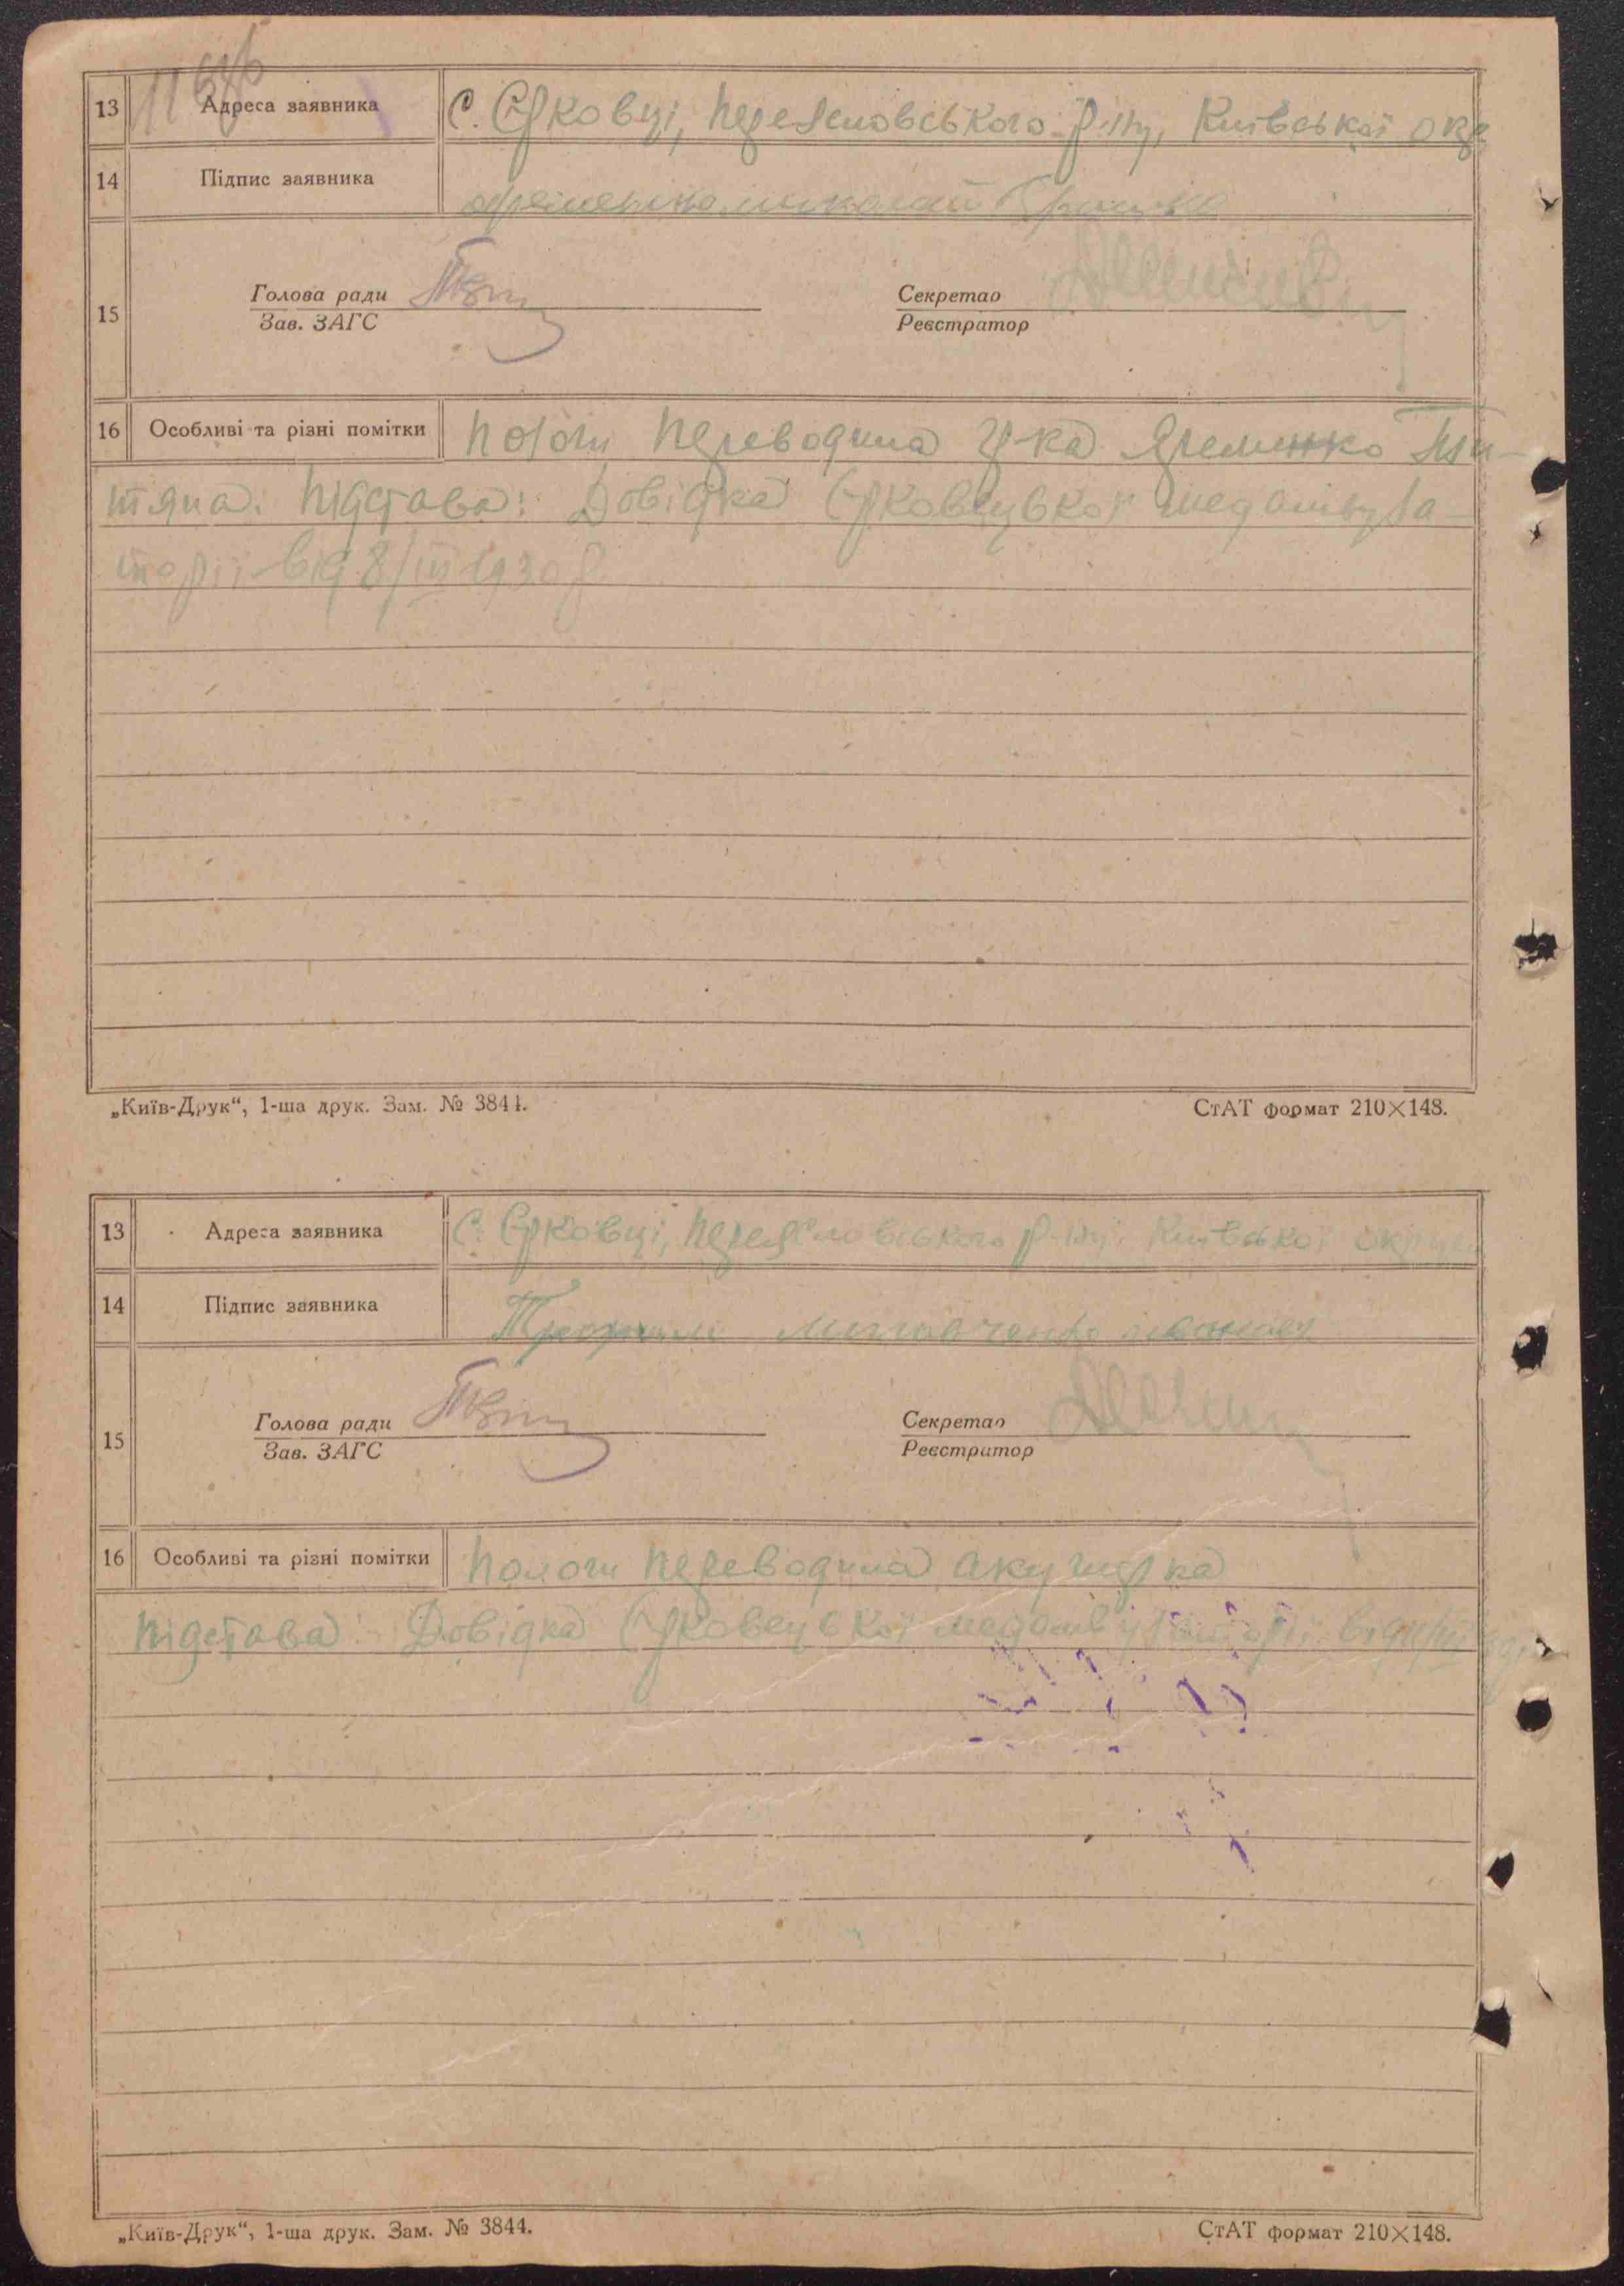 13 Адреса заявника С. Єрковці, Переяславського р-ну, Київської окр
14 Підпис заявника
Голова ради Секретар
15
Зав. ЗАГС Реєстратор
16 Особливі та різні помітки Пологи переводила Яременко
Підстава: Довідка Єрковецької медамбула-
торії від 8/III 1930 р
„Київ-Друк“, 1-ша друк. Зам. № 3844. СтАТ формат 210×148.
13 Адреса заявника С. Єрковці, Переяславського р-ну, Київської округи
14 Підпис заявника
Голова ради Секретар
15
Зав. ЗАГС Реєстратор
16 Особливі та різні помітки Пологи переводила акушерка
Підстава: Довідка Єрковецької медамбулаторії від
„Київ-Друк“, 1-ша друк. Зам. № 3844. СтАТ формат 210×148.